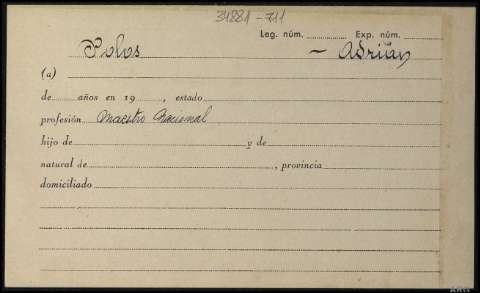 34881-711
Leg. núm. Exp. núm.
Polos - Adrián
(a)
de años en 19 , estado
profesión Maestro Nacional
hijo de y de
natural de , provincia
domiciliado